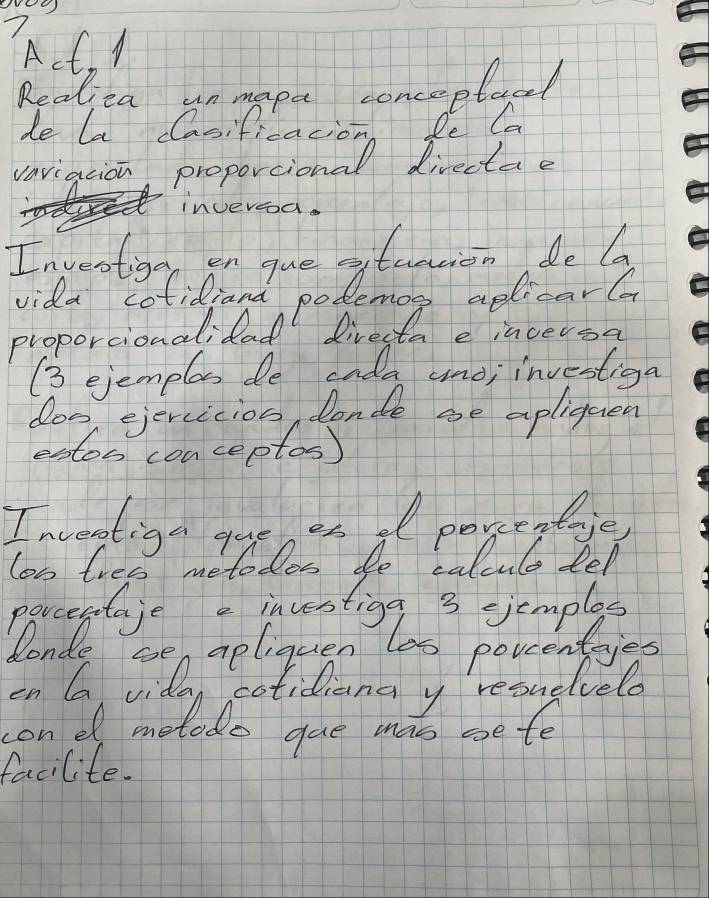 Act. 1
Realiza un mapa conceptual
de la clasificación de la
variación proporcional directa e
inversa.
Investiga en que situación de la
vida cotidiana podemos aplicar la
proporcionalidad directa e inversa
(3 ejemplos de cada uno; investiga
dos ejercicios donde se apliquen
estos conceptos)
Investiga que es el porcentaje,
los tres metodos de calculo del
porcentaje e investiga 3 ejemplos
donde se apliquen los porcentajes
en la vida cotidiana y resuelvelo
con el metodo que más se te
facilite.